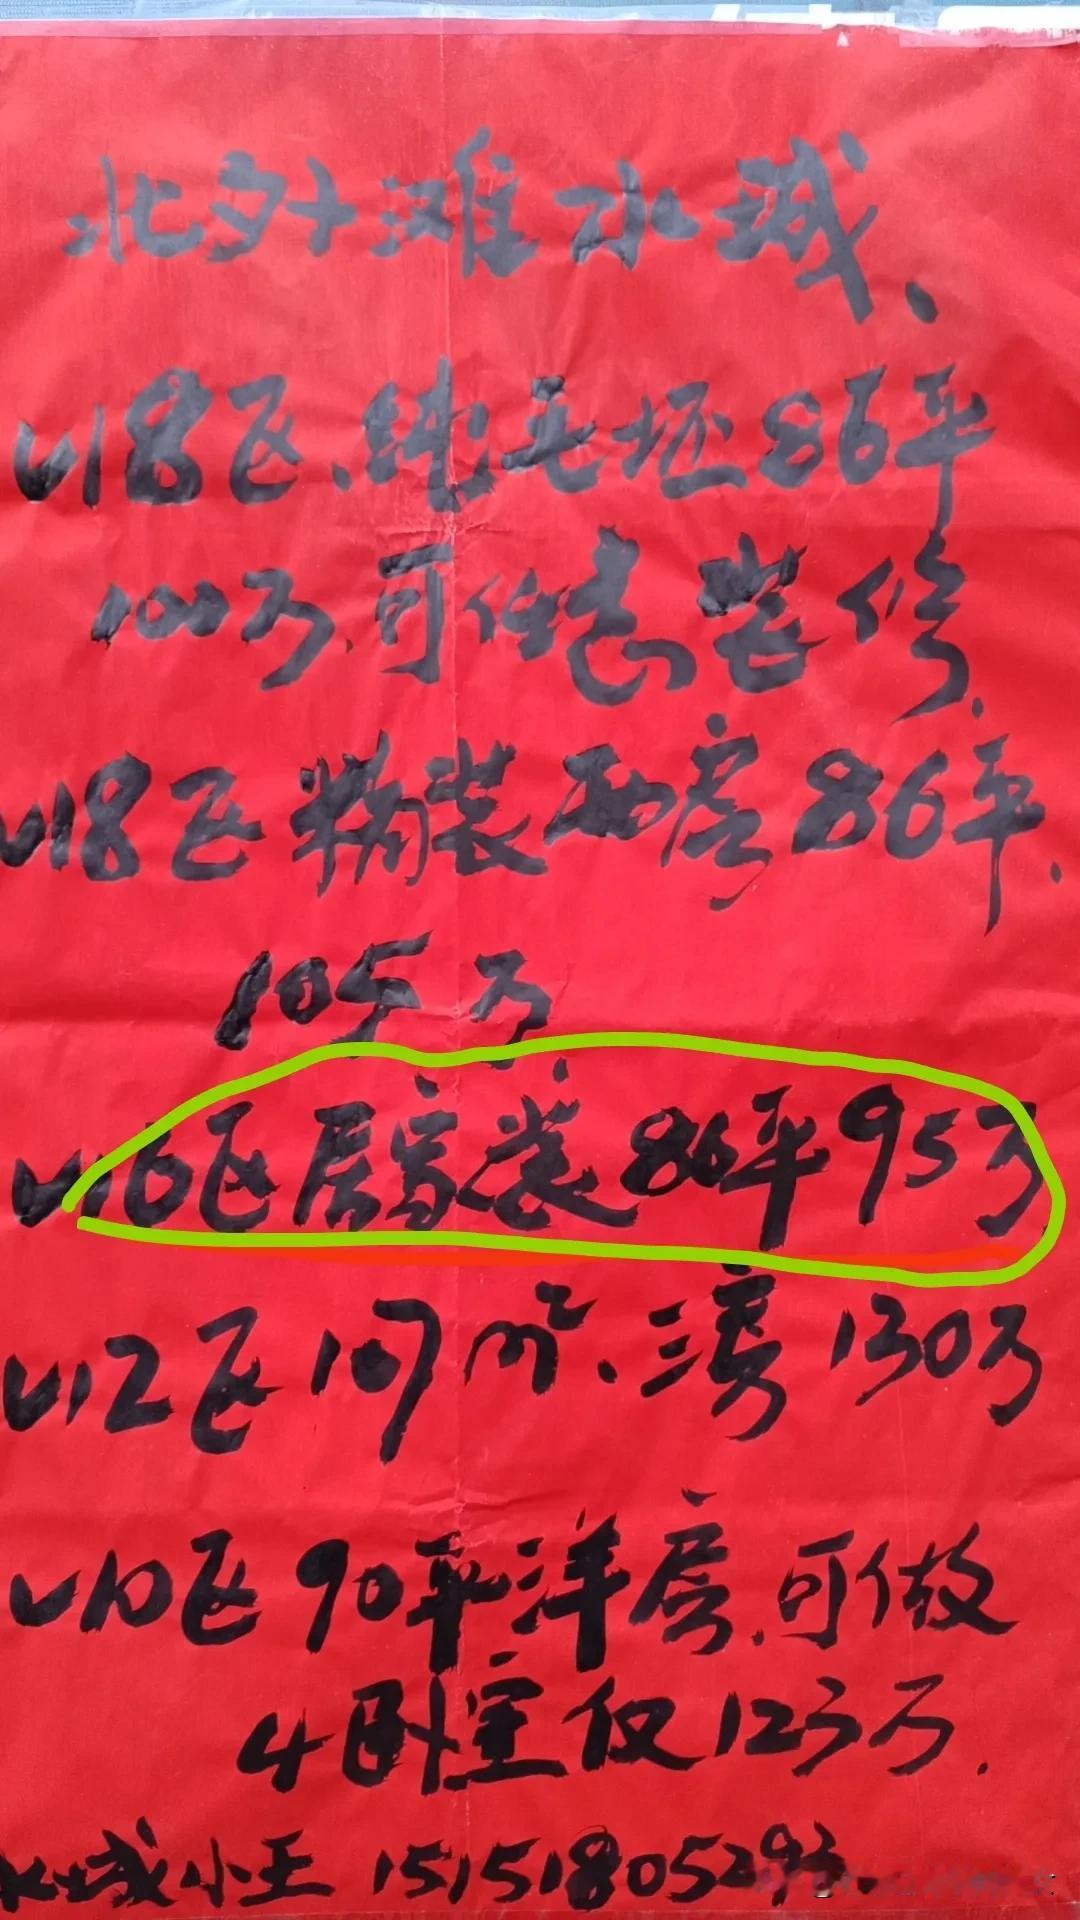 北外滩水城、
V18区、纯毛坯86平
100万.可任意装修.
V18区精装两房86平.
105万
V16区居家装86平95万
V12区107m²、三房130万
V10区90平洋房.可做
4卧室仅123万.
水城小王 15151805293.